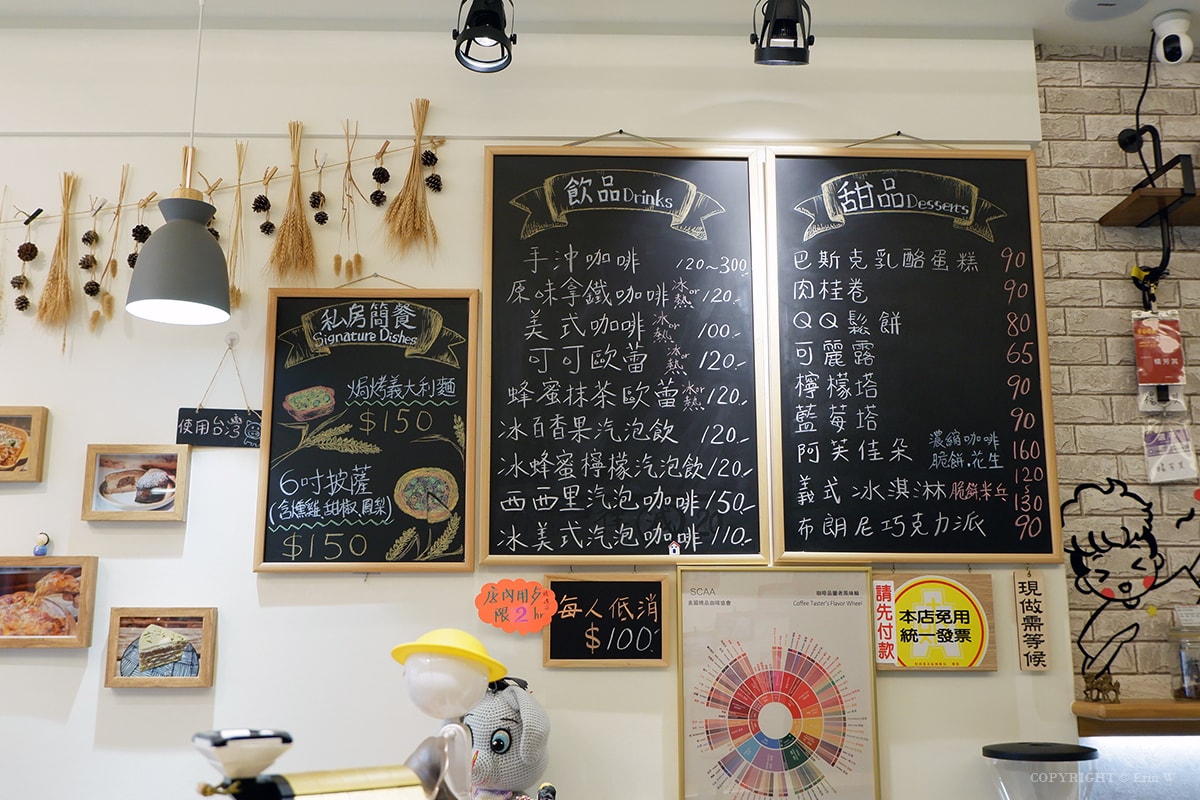 私房簡餐
Signature Dishes
焗烤義大利麵
$150
6吋披薩
(含燻雞 甜椒 鳳梨)
$150
使用台灣
飲品Drinks
手沖咖啡 120~300
原味拿鐵咖啡 冰or熱 120.-
美式咖啡 冰or熱 100.-
可可歐蕾 冰or熱 120.-
蜂蜜抹茶歐蕾 冰or熱 120.-
冰百香果汽泡飲 120.-
冰蜂蜜檸檬汽泡飲 120.-
西西里汽泡咖啡 150.-
冰美式汽泡咖啡 110.-
甜品Desserts
巴斯克乳酪蛋糕 90
肉桂卷 90
QQ鬆餅 80
可麗露 65
檸檬塔 90
藍莓塔 90
阿芙佳朵 濃縮咖啡 脆餅.花生 160
義式冰淇淋 脆餅米兵 120~130
布朗尼巧克力派 90
店內用歺
限2hr
每人低消
$100.-
SCAA
美國精品咖啡協會
咖啡品鑑者風味輪
Coffee Taster's Flavor Wheel
請先付款
本店免用
統一發票
現做需等候
COPYRIGHT © Erin W